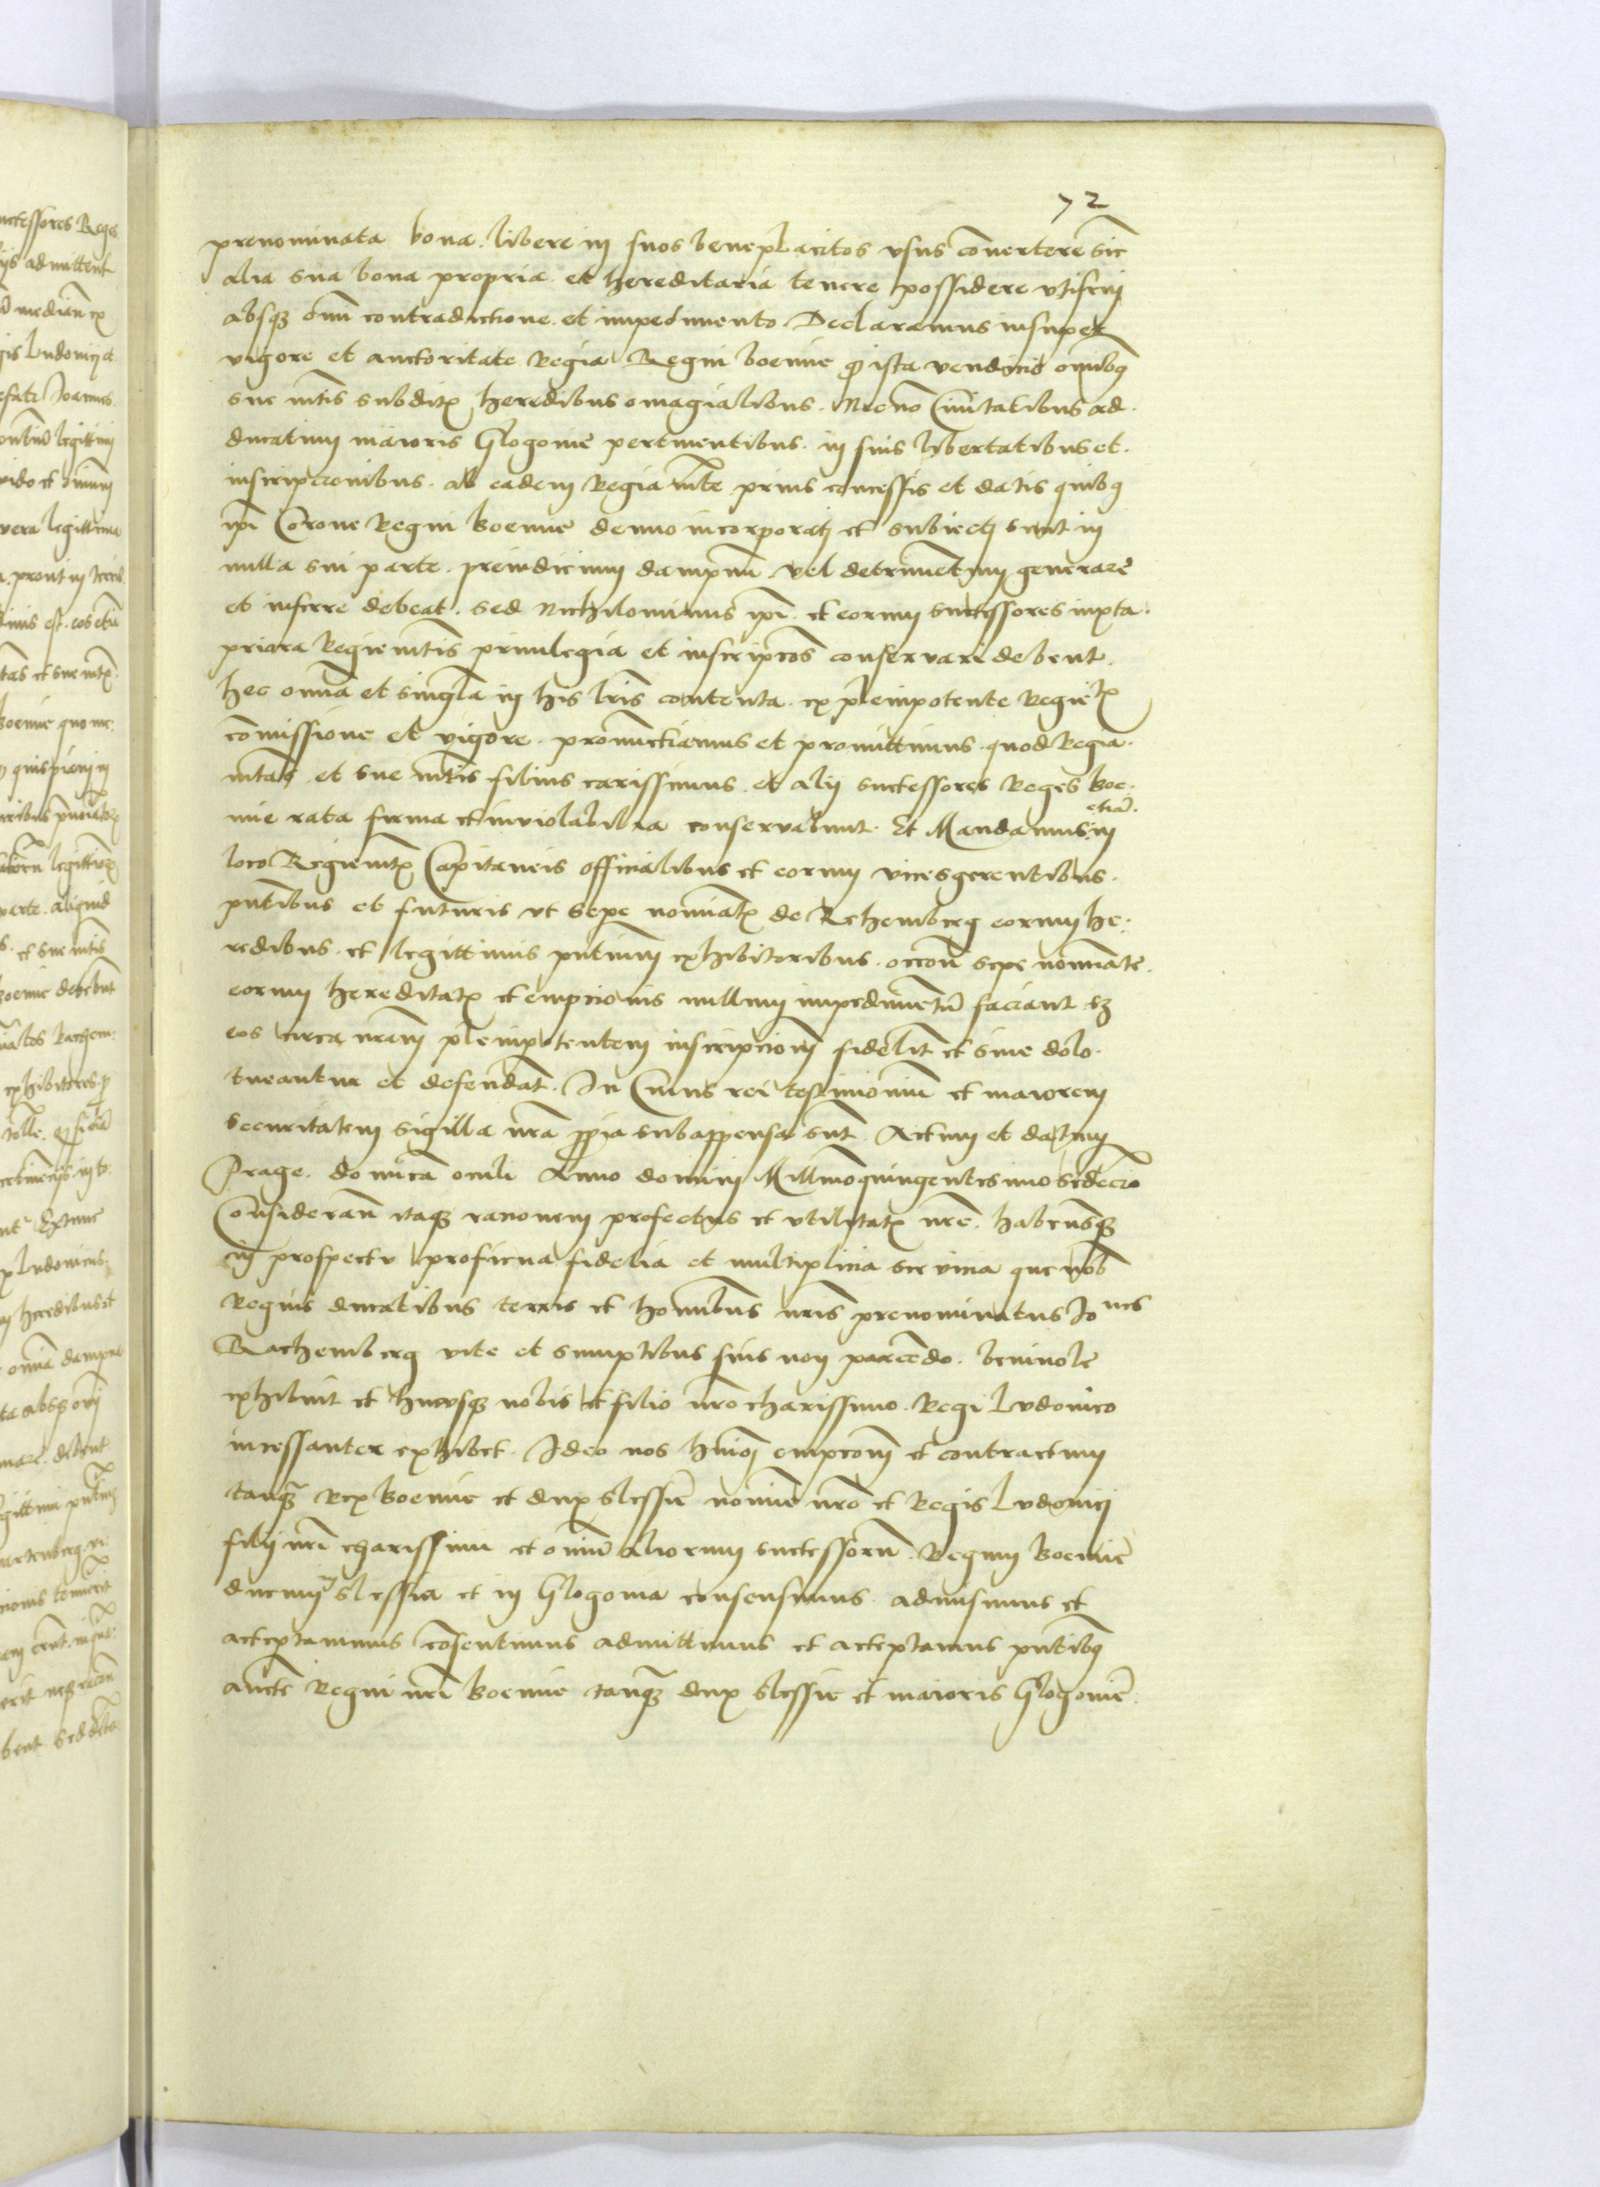 72
prenominata bona libere in suos beneplacitos usus cōvertere sic
alia sua bona propria et hereditaria tenere possidere utifrui
absq3 omī contradictione et impedimento Declaramus insuper
vigore et auctoritate Regia Regni boemie ista omībq
sue mtis subditꝫ heredibus omagialibus. Necnō Civitatibus ad
ducatum maioris Glogonie pertinentibus in suis libertatibus et
inscripccionibus ab eadem Regia mte prius concessis et datis quibq
ipi Corone Regni boemie denuo incorporati et subiecti sunt in
nulla sui parte preiudicium dampnū vel detrimētum generare
et inferre debeat. sed Nichilominus ipi et eorum successores iuxta
priora Regie mtis privilegia et inscripcōs conservari debent.
hec omīa et singla in his lris contenta ex plenipotente Regie mtꝫ
cōmissione et vigore pronunctiamus et promittimus quod Regia
mtas et sue mtis filius carissimus et alij successores Reges boe-
mie rata firma et inviolabilia conservabunt. Et Mandamus etiā in
loco Regie mtꝫ Capitaneis officialibus et eorum vicesgerentibus
pntibus et futuris ut sepe nominatꝫ de Rehemberg eorum he-
redibus et legittimis pntium exhibitoribus occōn sepe nominate
eorum hereditatꝫ et empcionis nullum impedimētū faciant sꝫ
eos circa nram plenipotentem inscripcionem fidelit et sine dolo
tueantur et defendāt. In Cuius rei testimonium et maiorem
securitatem sigilla nra ppia subappensa sūt. Actum et datum
Prage. dominica oculi Anno domini Millmoquingentesimosedecīo
Considerān itaq3 racionem profectus et utilitatꝫ nre. habensq3
in prospectu proficua fidelia et multiplicia servicia que nob
Regnis ducatibus terris et hominibus nris prenominatus Joānes
Rachemberg vite et sumptibus suis non parcendo benivole
exhibuit et hucusq3 nobis et filio nro charissimo Regi Ludovico
incessanter exhibet. Ideo nos hmōi empcōnem et contractum
tanq3 Rex boemie et dux slessie nomine nro et Regis Ludovici
filij nri charissimi et omniū aliorum successorū Regum boemie
ducum slessia et in Glogonia consensimus admisimus et
acceptamus cōsentimus admittimus et acceptamus pntibq
aucte Regni nri boemie tanq3 dux slessie et maioris Glogonie